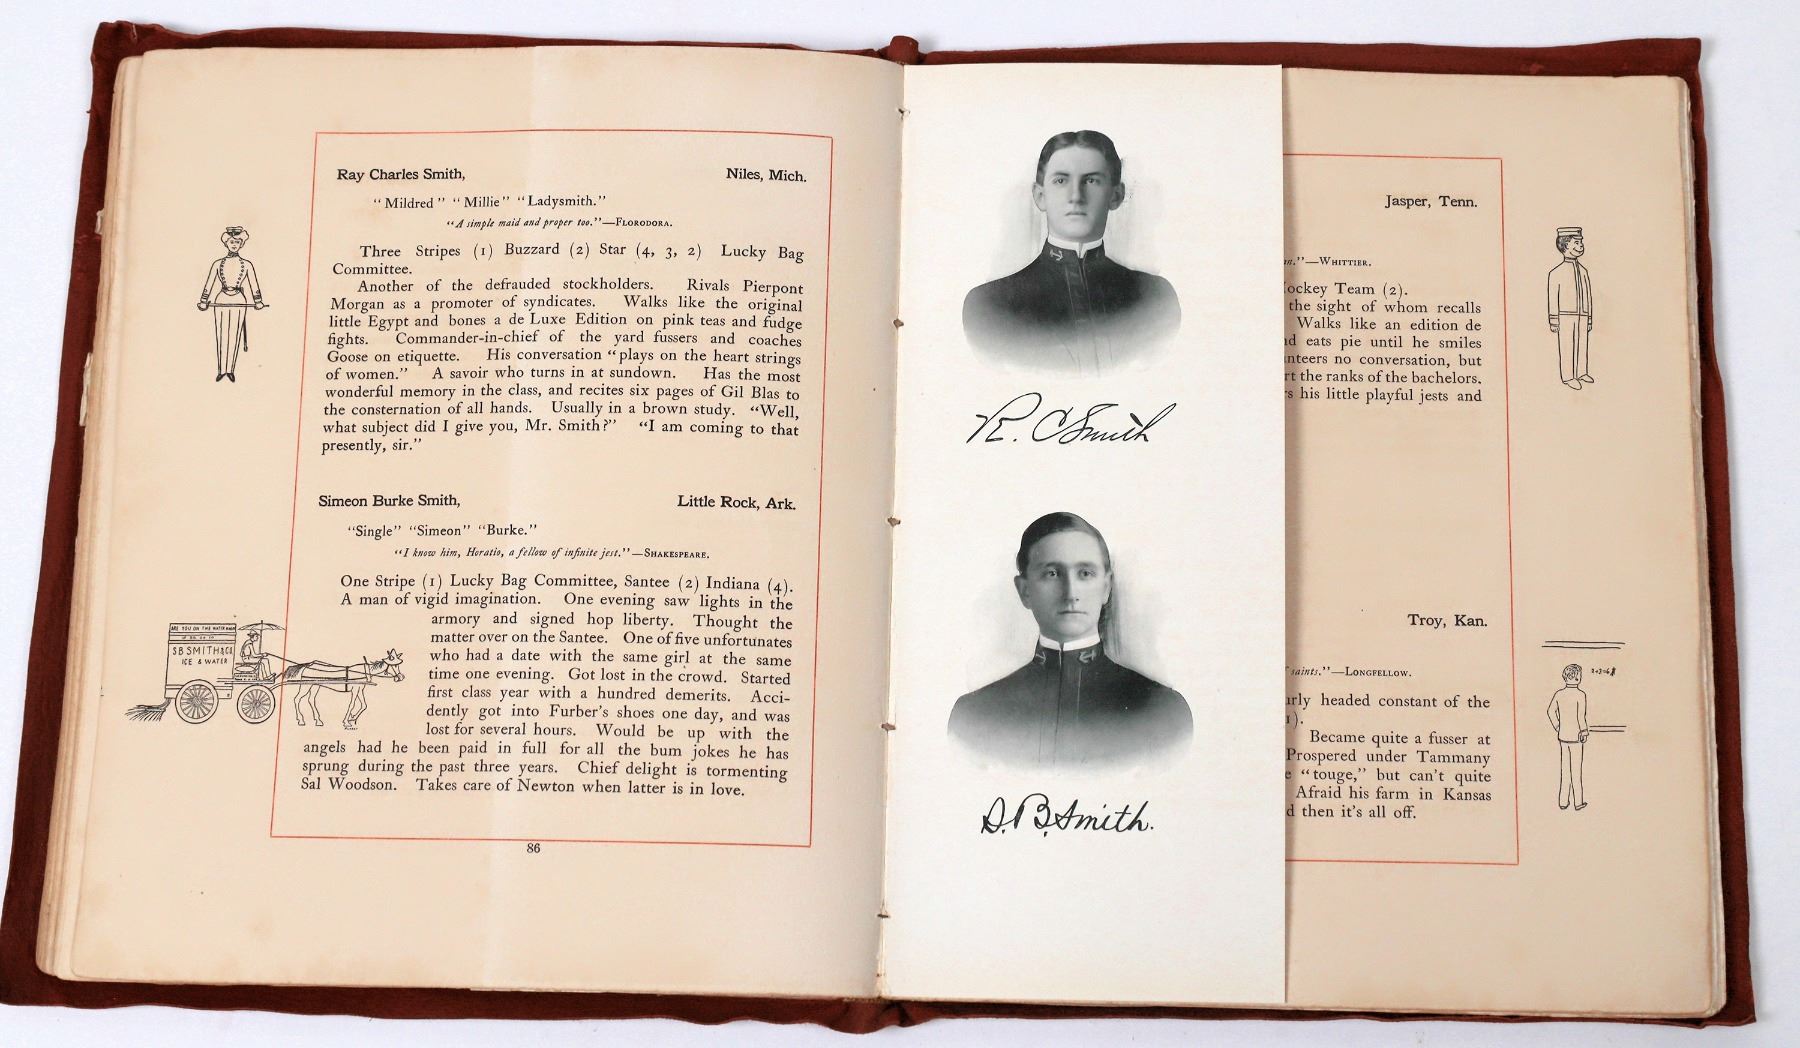 Ray Charles Smith, Niles, Mich.
“Mildred” “Millie” “Ladysmith.”
“A simple maid and proper too.”—FLORODORA.
Three Stripes (1) Buzzard (2) Star (4, 3, 2) Lucky Bag
Committee.
Another of the defrauded stockholders. Rivals Pierpont
Morgan as a promoter of syndicates. Walks like the original
little Egypt and bones a de Luxe Edition on pink teas and fudge
fights. Commander-in-chief of the yard fussers and coaches
Goose on etiquette. His conversation “plays on the heart strings
of women.” A savoir who turns in at sundown. Has the most
wonderful memory in the class, and recites six pages of Gil Blas to
the consternation of all hands. Usually in a brown study. “Well,
what subject did I give you, Mr. Smith?” “I am coming to that
presently, sir.”
Simeon Burke Smith, Little Rock, Ark.
“Single” “Simeon” “Burke.”
“I know him, Horatio, a fellow of infinite jest.”—SHAKESPEARE.
One Stripe (1) Lucky Bag Committee, Santee (2) Indiana (4).
A man of vigid imagination. One evening saw lights in the
armory and signed hop liberty. Thought the
matter over on the Santee. One of five unfortunates
who had a date with the same girl at the same
time one evening. Got lost in the crowd. Started
first class year with a hundred demerits. Acci-
dently got into Furber's shoes one day, and was
lost for several hours. Would be up with the
angels had he been paid in full for all the bum jokes he has
sprung during the past three years. Chief delight is tormenting
Sal Woodson. Takes care of Newton when latter is in love.
ARE YOU ON THE WATER WAGON
S B SMITH & CO.
ICE & WATER
86
R. C Smith
S. B. Smith.
Jasper, Tenn.
”—WHITTIER.
ockey Team (2).
the sight of whom recalls
Walks like an edition de
d eats pie until he smiles
nteers no conversation, but
rt the ranks of the bachelors.
s his little playful jests and
Troy, Kan.
saints.”—LONGFELLOW.
urly headed constant of the
1).
Became quite a fusser at
Prospered under Tammany
e “touge,” but can't quite
Afraid his farm in Kansas
d then it's all off.